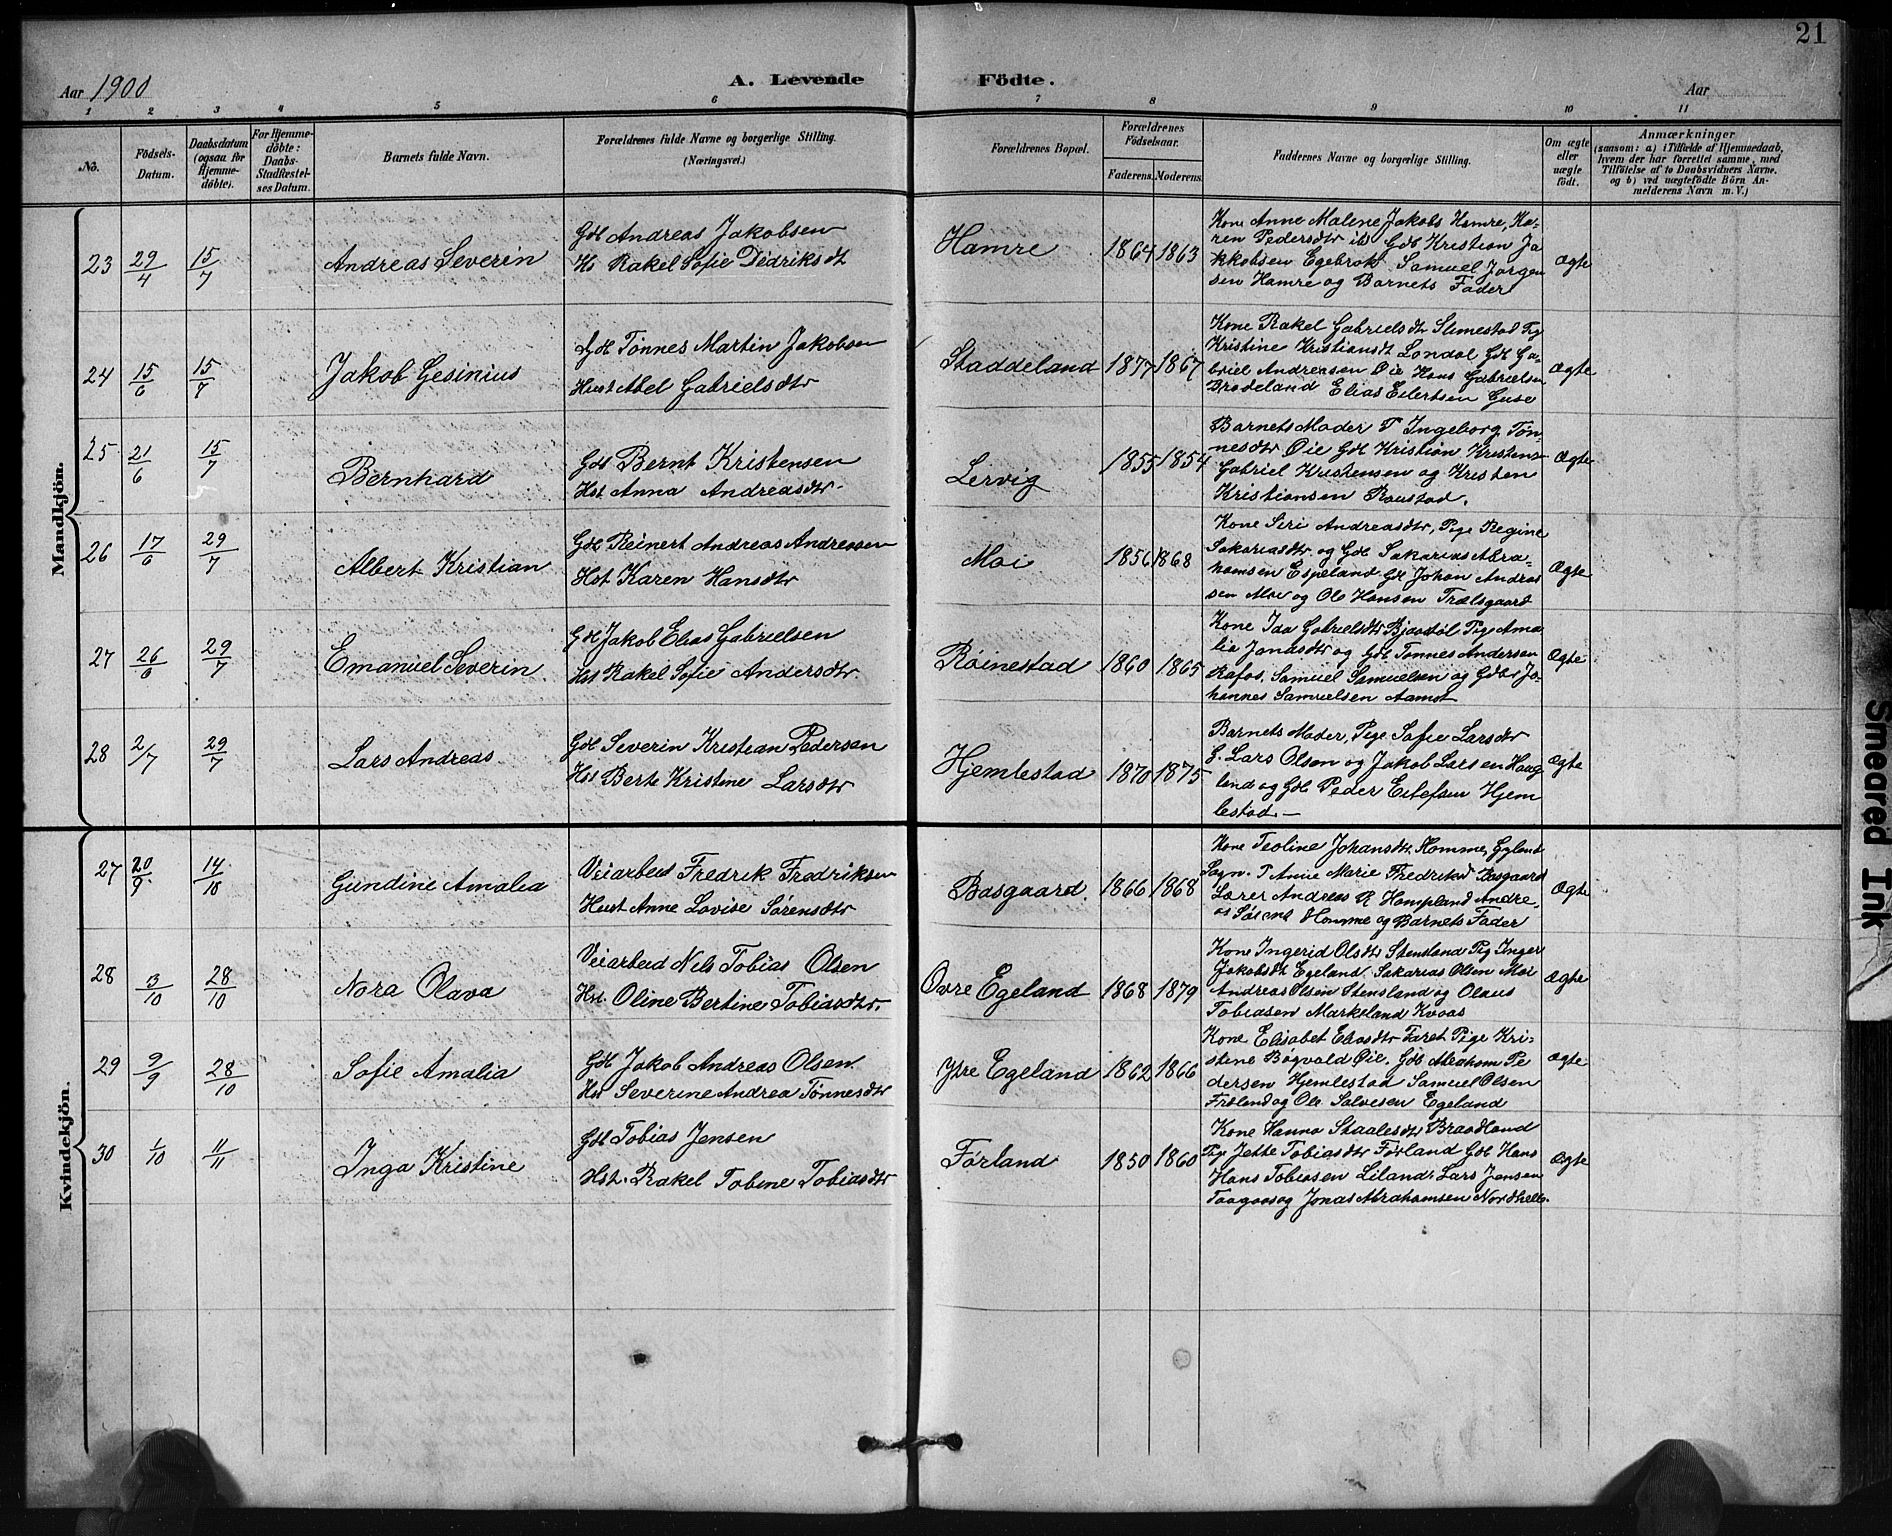 21
Aar 1900
A. Levende Födte.
Aar
1 2 3 4 5 6 7 8 9 10 11
No.
Födsels-
Datum.
Daabsdatum
(ogsaa for
Hjemme-
döbte).
For Hjemme-
döbte:
Daabs-
Stadfæstel-
ses Datum.
Barnets fulde Navn.
Forældrenes fulde Navne og borgerlige Stilling.
(Næringsvei.)
Forældrenes Bopæl.
Forældrenes
Födselsaar.
Faderens. Moderens.
Faddernes Navne og borgerlige Stilling.
Om ægte
eller
uægte
födt.
Anmærkninger
(saasom: a) i Tilfælde af Hjemmedaab,
hvem der har forrettet samme, med
Tilföielse af to Daabsvidners Navne.
og b) ved uægtefödte Börn An-
melderens Navn m. V.)
Mandkjön.
23 29/4 15/7 Andreas Severin
Gdb Andreas Jakobsen
Hs Rakel Sofie Didriksdt
Hamre 1864 1863
Kone Anne Malene Jakobs Hamre, Ka-
ren Pedersdtr ib Gdb Kristian Ja
kkobsen Egebrok Samuel Jørgen
sen Hamre og Barnets Fader
Ægte
24 15/6 15/7 Jakob Gesinius
Gdb Tönnes Martin Jakobsen
Hust Abel Gabrielsdtr
Staddeland 1877 1867
Kone Rakel Gabrielsdtr Slimestad Pig
Kristine Kristiansdt Londal Gdb Ga-
briel Andreasen Øie Hans Gabrielsen
Brødeland Elias Eilertsen Guse
Ægte
25 21/6 15/7 Bernhard
Gdb Bernt Kristensen
Hst Anna Andreasdtr
Lervig 1855 1854
Barnets Moder P Ingeborg Tön-
nesdtr Øie Gdb Kristian Kristens-
Gabriel Kristensen og Kristen
Kristiansen Raustad.
Ægte
26 17/6 29/7 Albert Kristian
Gdb Reinert Andreas Andreasen
Hst Karen Hansdtr
Moi 1856 1868
Kone Siri Andreasdtr, Pige Regine
Sakariasdtr. og Gdb Sakarias Abra-
hamsen Espeland Gdb Johan Andreas
sen Moi og Ole Hansen Trælsgaard
Ægte
27 26/6 29/7 Emanuel Severin
Gdb Jakob Elias Gabrielsen
Hst Rakel Sofie Andersdtr.
Röinestad 1860 1865
Kone Gabrielsdtr Pige Ama
lie Jonasdtr og Gdb Tönnes Andersen
Rafos, Samuel Samuelsen og Gdbr Jo-
hannes Samuelsen Aamot
Ægte
28 2/7 29/7 Lars Andreas
Gdb Severin Kristian Pedersen
Hst Berte Kristine Larsdtr
Hjemlestad 1870 1875
Barnets Moder, Pige Sofie Larsdtr
G. Lars Olsen og Jakob Larsen Haug
land og Gdb Peder Hjem
lestad.
Ægte
Kvindekjön.
27 20/9 14/10 Gundine Amalia
Veiarbeid Fredrik Fredriksen
Hust Anne Lovise Sörensdtr
Basgaard 1866 1868
Kone Teoline Johansdtr Homme, Gyland
Sogn. P Anne Marie Fredriksd Basgaard
Lærer Andreas R Hompland Andre
as Homme og Barnets Fader
Ægte
28 3/10 28/10 Nora Olava
Veiarbeid Nils Tobias Olsen
Hst. Oline Bertine Tobiasdtr.
Ovre Egeland 1868 1879
Kone Ingerid Olsdtr Stensland Pig Inger
Jakobsdt Egeland, Sakarias Olsen Moi
Andreas Olsen Stensland og Olaus
Tobiasen Markeland Kvaas
Ægte
29 9/9 28/10 Sofie Amalia
Gdb Jakob Andreas Olsen
Hst Severine Andrea Tönnesdtr
Ytre Egeland 1862 1866
Kone Elisabet Eliasdtr Faret Pige Kri-
stine Bögvald Øie, Gdb Abraham Pe
dersen Hjemlestad Samuel Olsen
Fröland og Ole Salvesen Egeland
Ægte
30 1/10 11/11 Inga Kristine
Gdb Tobias Jensen
Hst. Rakel Tobine Tobiasdtr
Förland 1850 1860
Kone Hanna Staalesdtr Braadland
Pige Jette Tobiasdtr Förland Gdb Hans
Hans Tobiasen Liland, Lars Jensen
og Jonas Abrahamsen Nordhelle.
Ægte
Smeared Ink